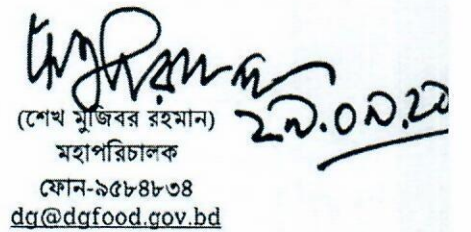 ২৯.০৯.২০
(শেখ মুজিবর রহমান)
মহাপরিচালক
ফোন-৯৫৮৪৮৩৪
dg@dgfood.gov.bd